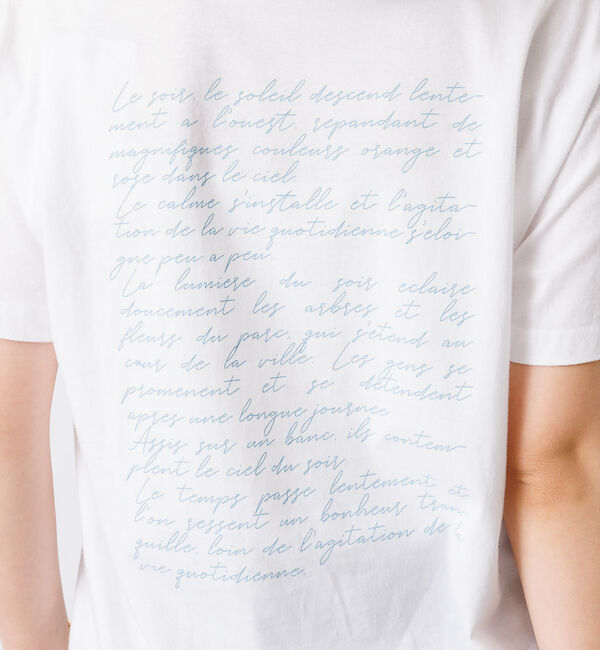 Le soir, le soleil descend lente-
ment a l'ouest, repandant de
magnifiques couleurs orange et
rose dans le ciel.
Le calme s'installe et l'agita-
tion de la vie quotidienne s'eloi-
gne peu a peu.
La lumiere du soir eclaire
doucement les arbres et les
fleurs du parc, qui s'étend au
cœur de la ville. Les gens se
promenent et se détendent
apres une longue journee
Assis sur un banc, ils contem-
plent le ciel du soir.
Le temps passe lentement et
l'on ressent un bonheur tran-
quille, loin de l'agitation de la
vie quotidienne.